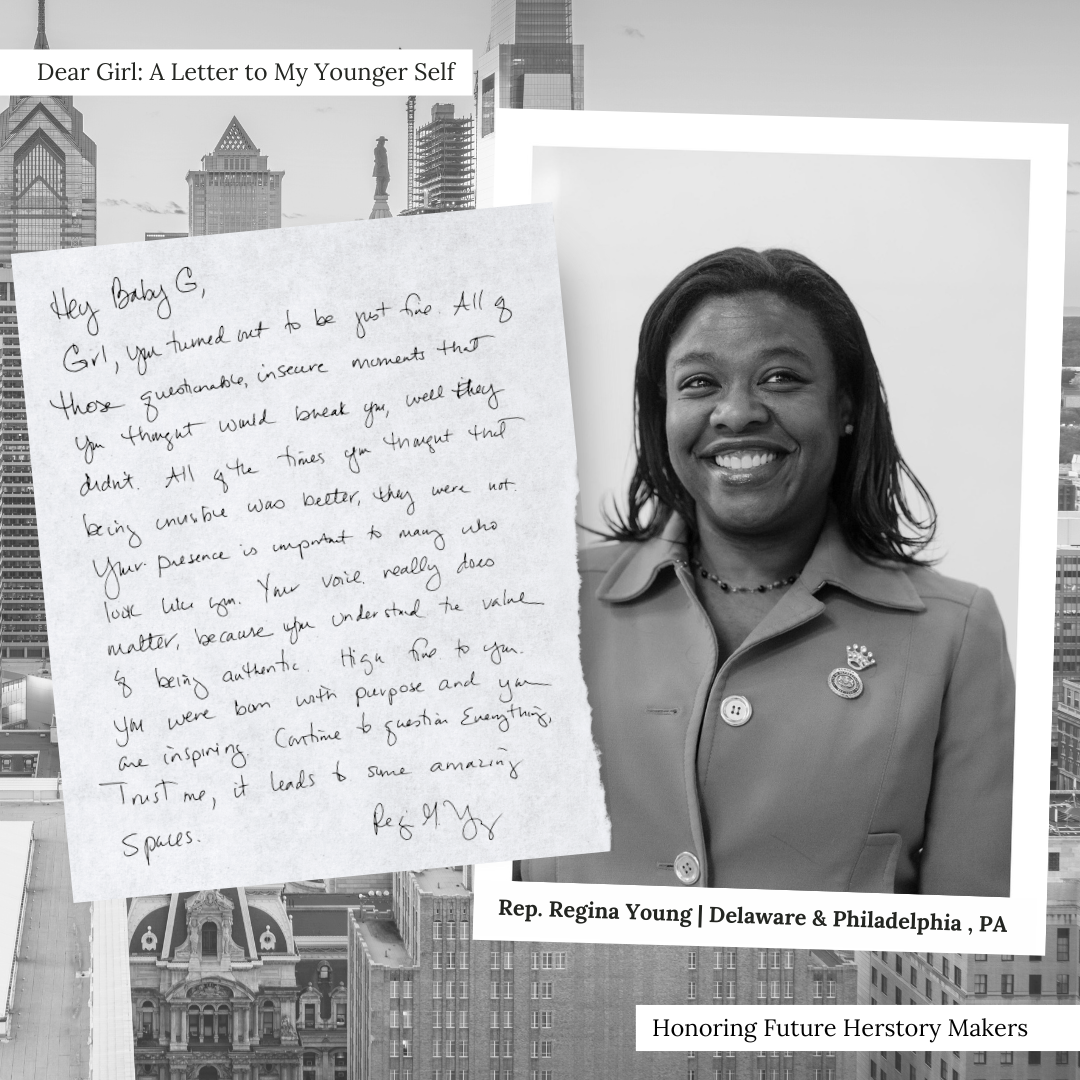 Dear Girl: A Letter to My Younger Self
Hey Baby G,
Girl, you turned out to be just fine. All of
those questionable, insecure moments that
you thought would break you, well they
didn't. All of the times you thought that
being invisible was better, they were not.
Your presence is important to many who
look like you. Your voice really does
matter, because you understand the value
of being authentic. High five to you.
You were born with purpose and you
are inspiring. Continue to question Everything,
Trust me, it leads to some amazing
Spaces.
Rep. Regina Young | Delaware & Philadelphia , PA
Honoring Future Herstory Makers